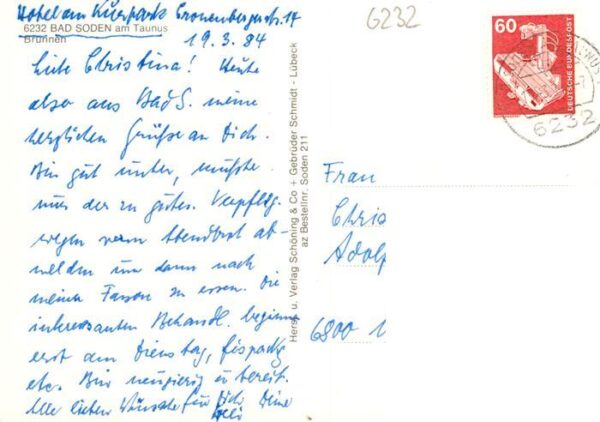 Hotel am Kurpark Cronenbergerstr. 17
6232 BAD SODEN am Taunus
Brunnen
19.3.84
Liebe Christina! Heute
also aus Bad S. meine
herzlichen Grüße an Dich.
Bin gut unter, mußte
nur der zu guten Verpfleg.
wegen vom Abendbrot ab-
melden um dann nach
meiner Fasson zu essen. Die
interessanten Behandl. beginnen
erst am Dienstag, Eispackg
etc. Bin neugierig u. bereit.
Alle lieben Wünsche für Dich Deine
Hersg. u. Verlag Schöning & Co + Gebrüder Schmidt - Lübeck
az Bestellnr. Soden 211
6232
60
DEUTSCHE BUNDESPOST
6232
Frau
Chris
Adolf
6800 1